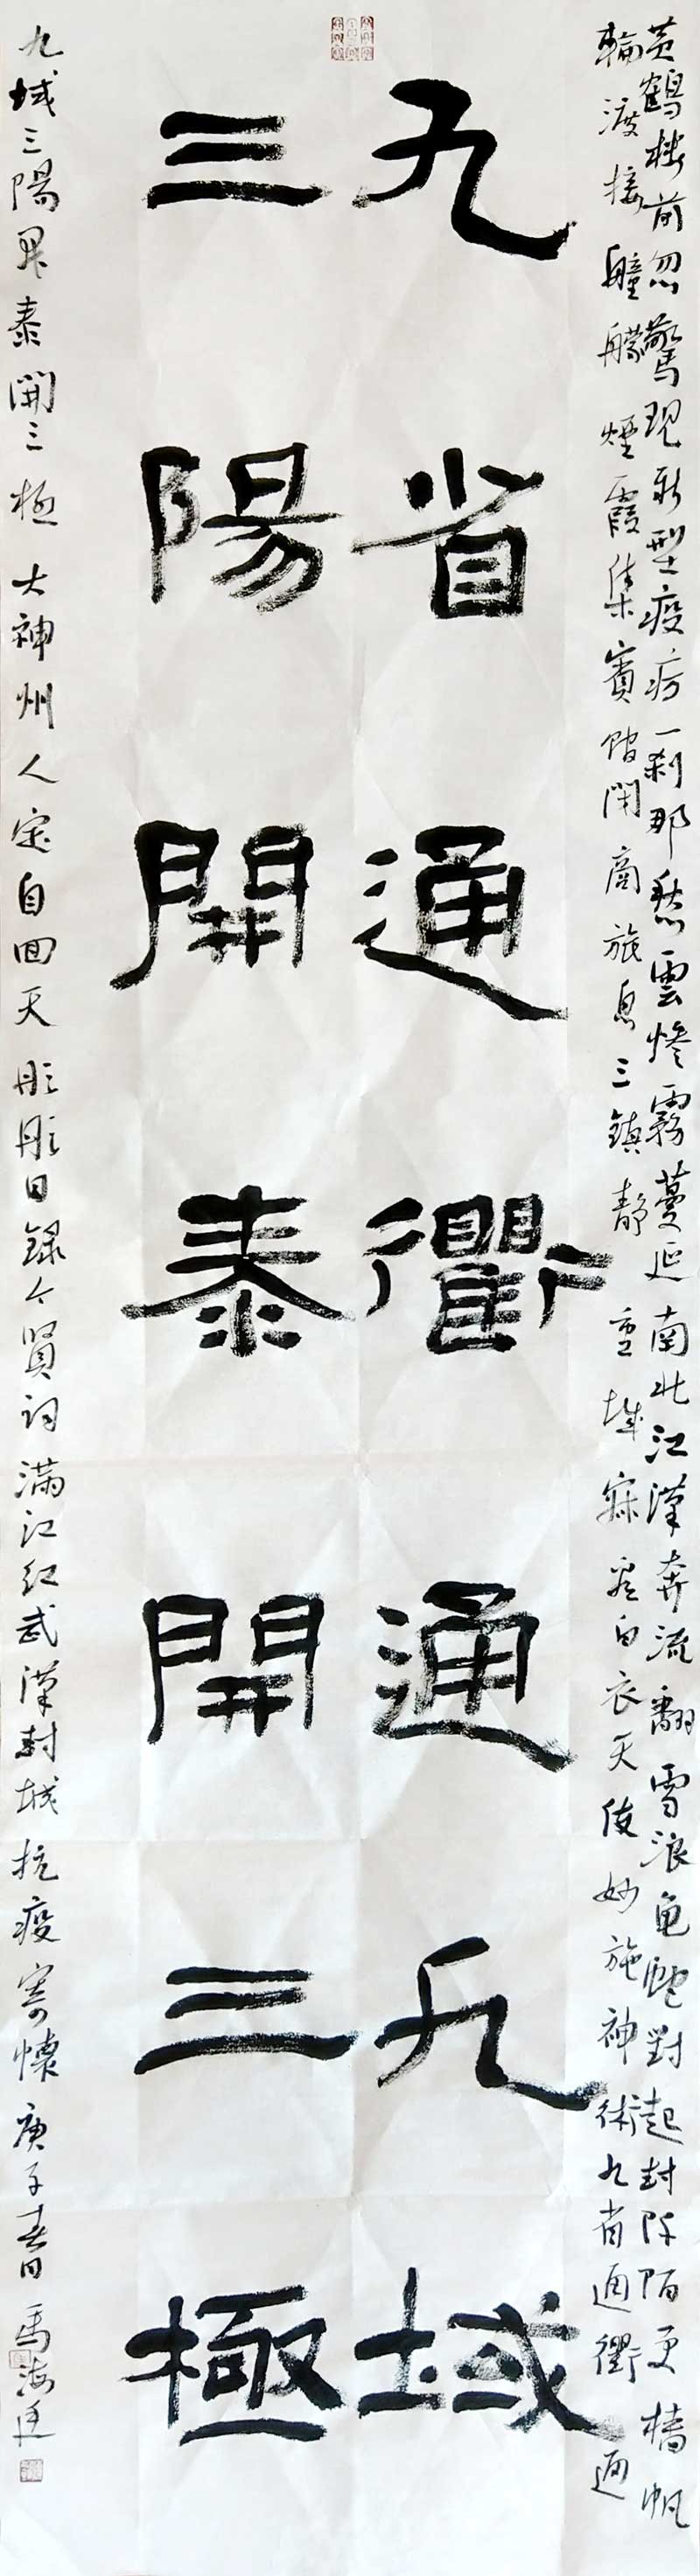 黄鶴楼前忽驚現新型疫疠一刹那愁雲惨霧蔓延南北江漢奔流翻雪浪龟蛇對起封阡陌更樯帆
輪渡接艟艨煙霞集賓館閉商旅息三鎮静重城寂看白衣天使妙施神術九省通衢通
九省通衢通九域
三陽開泰開三極
九域三陽昇泰開三極大神州人定自回天彤彤日録今賢詞滿江紅武漢封城抗疫寄懷庚子春馬海廷